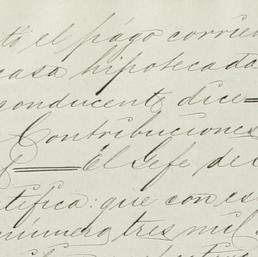 tó el pago corrien
casa hipotecada
conducente dice=
Contribuciones
El Gefe de
tifica: que con es
número tres mil